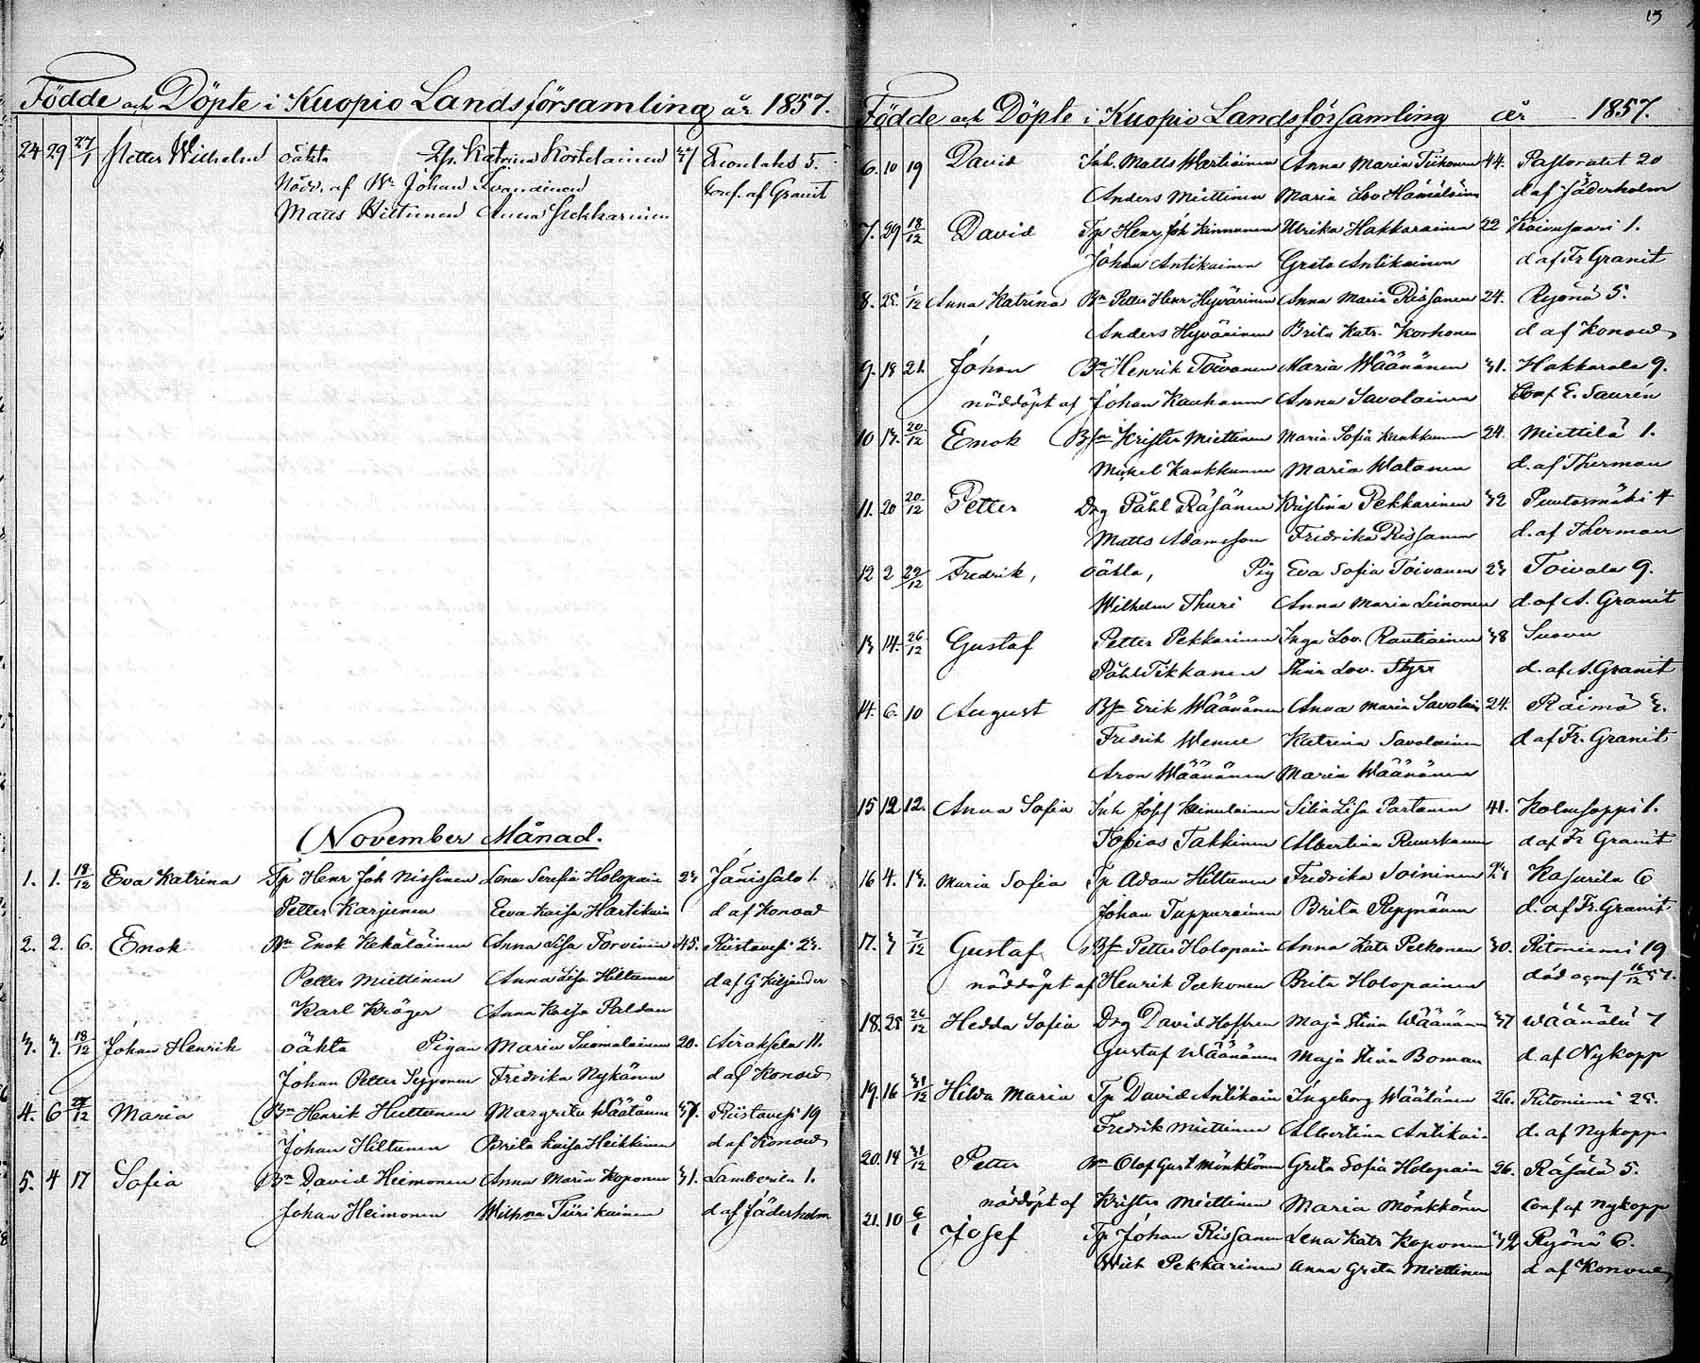 Födde och Döpte i Kuopio Landsförsamling år 1857.
24 29 27/1 Petter Wilhelm oäkta Katrina Kortelainen
Nödd. af Johan
Conf. af Granit
Matts Hiltunen Anna Pekkarinen
November Månad.
1. 1. 18/12 Eva Katrina Tp Henr Joh Nissinen Lena Serefia Holopain 23 Jänissalo 1.
Petter Karjunen Eeva Kaisa Hartikain d af Konow
2. 2. 6. Enok Bn Enok Kekäläinen Anna Lisa Torvinin 45. Riistavesi 23.
Petter Miettinen Anna Lisa Hiltunen d af G Kiljander
Karl Kröger Anna Kaisa Paldan
3. 3. 18/12 Johan Henrik oäkta Pigan Maria Tuomalainen 20. Airaksela 11.
Johan Petter Sepponen Fredrika Nykänen d af Konow
4. 6 Maria Bn Henrik Huttunen Margreta Väätäinen 37. Riistavesi 19
Johan Hiltunen Brita Kaisa Heikkinen d af Konow
5. 4 17 Sofia Bn David Heimonen Anna Maria Koponen 31. Lamberila 1.
Johan Heimonen Wilhma Tiirikainen d af Jäderholm
Födde och Döpte i Kuopio Landsförsamling år 1857.
6. 10 19 David Inh. Matts Wartiainen Anna Maria Tiikonen 44. Pastoratet 20
Anders Miettinen Maria Lov Hämäläinen d af Jäderholm
7. 29 18/12 David Tp Henr Joh Kinnunen Ulrika Hakkarainen 22 Koivusaari 1.
Johan Antikainen Greta Antikainen d af Fr Granit
8. 25. 1/12 Anna Katrina Bn Petter Henr Hyvärinen Anna Maria Rissanen 24. Ryönä 5.
Anders Hyvärinen Brita Katr. Korhonen d af Konow
9. 18 21. Johan Bn Henrik Toivanen Maria Wäänänen 31. Hakkarala 9.
nöddöpt af Johan Kauhanen Anna Savolainen Conf E. Saurén
10 13. 20/12 Enok Bsn Krister Miettinen Maria Sofia Kaukkunen 24. Miettilä 1.
Mickel Kaukkunen Maria Watanen d. af Therman
11. 20 20/12 Petter Drg Påhl Räsänen Kristina Pekkarinen 32 Puutosmäki 4
Matts Adamsson Fredrika Rissanen d. af Therman
12 2 22/12 Fredrik, oäkta, Pig Eva Sofia Toivanen 23 Toivala 9.
Wilhelm Thure Anna Maria Leinonen d. af A. Granit
13 14. 26/12 Gustaf Petter Pekkarinen Inga Lov. Rautiainen 38 Suovu
Påhl Tikkanen Stina Lov. Styrs d. af A. Granit
14. 6. 10 August Bsn Erik Wäänänen Anna Maria Savolain 24. Räimä 3.
Fredrik Wenne Katrina Savolainen d af Fr. Granit
Aron Wäänänen Maria Wäänänen
15 12 12. Anna Sofia Inh Josef Heinulainen Silia Lisa Partanen 41. Kolmisoppi 1.
Tobias Takkinen Albertina Ruuskanen d af Fr Granit
16 4. 13. Maria Sofia Tp Adam Hiltunen Fredrika Soininen 23 Kasurila 6
Johan Tuppurainen Brita Reppänen d. af Fr. Granit
17. 3 7/12 Gustaf Bsn Petter Holopain Anna Katr Pelkonen 30. Ritoniemi 19
nöddöpt af Henrik Pelkonen Brita Holopainen död o conf 16/12 57.
18. 25 26/12 Hedda Sofia Drg David Hoffren Maja Stina Wäänänen 37 Wäänälä 7
Gustaf Wäänänen Maja Stina Boman d. af Nykopp
19. 16 31/12 Hilda Maria Tp David Antikain Ingeborg Wäätänen 26. Ritoniemi 25.
Fredrik Miettinen Albertina Antikai- d. af Nykopp
20. 14 31/12 Petter Bn Olof Gust Mönkkönen Greta Sofia Holopain 26. Räsälä 5.
nöddöpt af Krister Miettinen Maria Mönkkönen Conf af Nykopp
21. 10 6/1 Josef Tp Johan Rissanen Lena Katr Koponen 32 Ryönä 6.
Wilh Pekkarinen Anna Greta Miettinen d af Konow